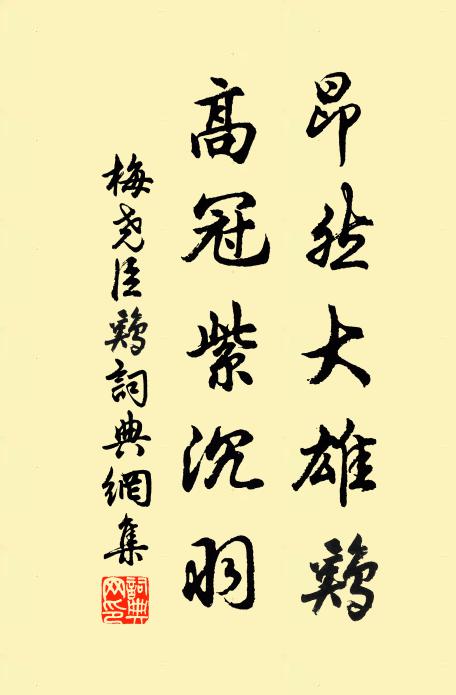 昂然大雄鷄
高冠紫沉羽
梅尧臣鷄詞典網集
詞典网印